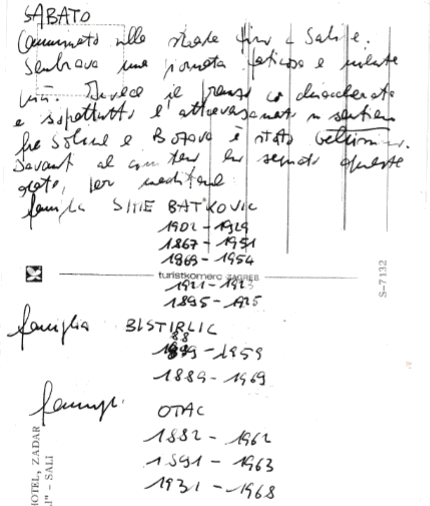 SABATO
Camminato nelle strade fino a Sali e.
Sembrava una giornata faticosa e niente
più. Invece il pranzo ci ha
e soprattutto l'attraversamento un sentiero
fra Soline e Božava è stato bellissimo.
Davanti al cimitero ho segnato queste
date, per meditare
famiglia SITIE BATKOVIC
1902 - 1929
1867 - 1951
1869 - 1954
turistkomerc ZAGREB
1921 - 1923
1895 - 1925
S-7132
famiglia BISTIRLIC
88 - 1959
1889 - 1969
famigl. OTAC
1882 - 1962
1891 - 1963
1931 - 1968
HOTEL, ZADAR
" - SALI